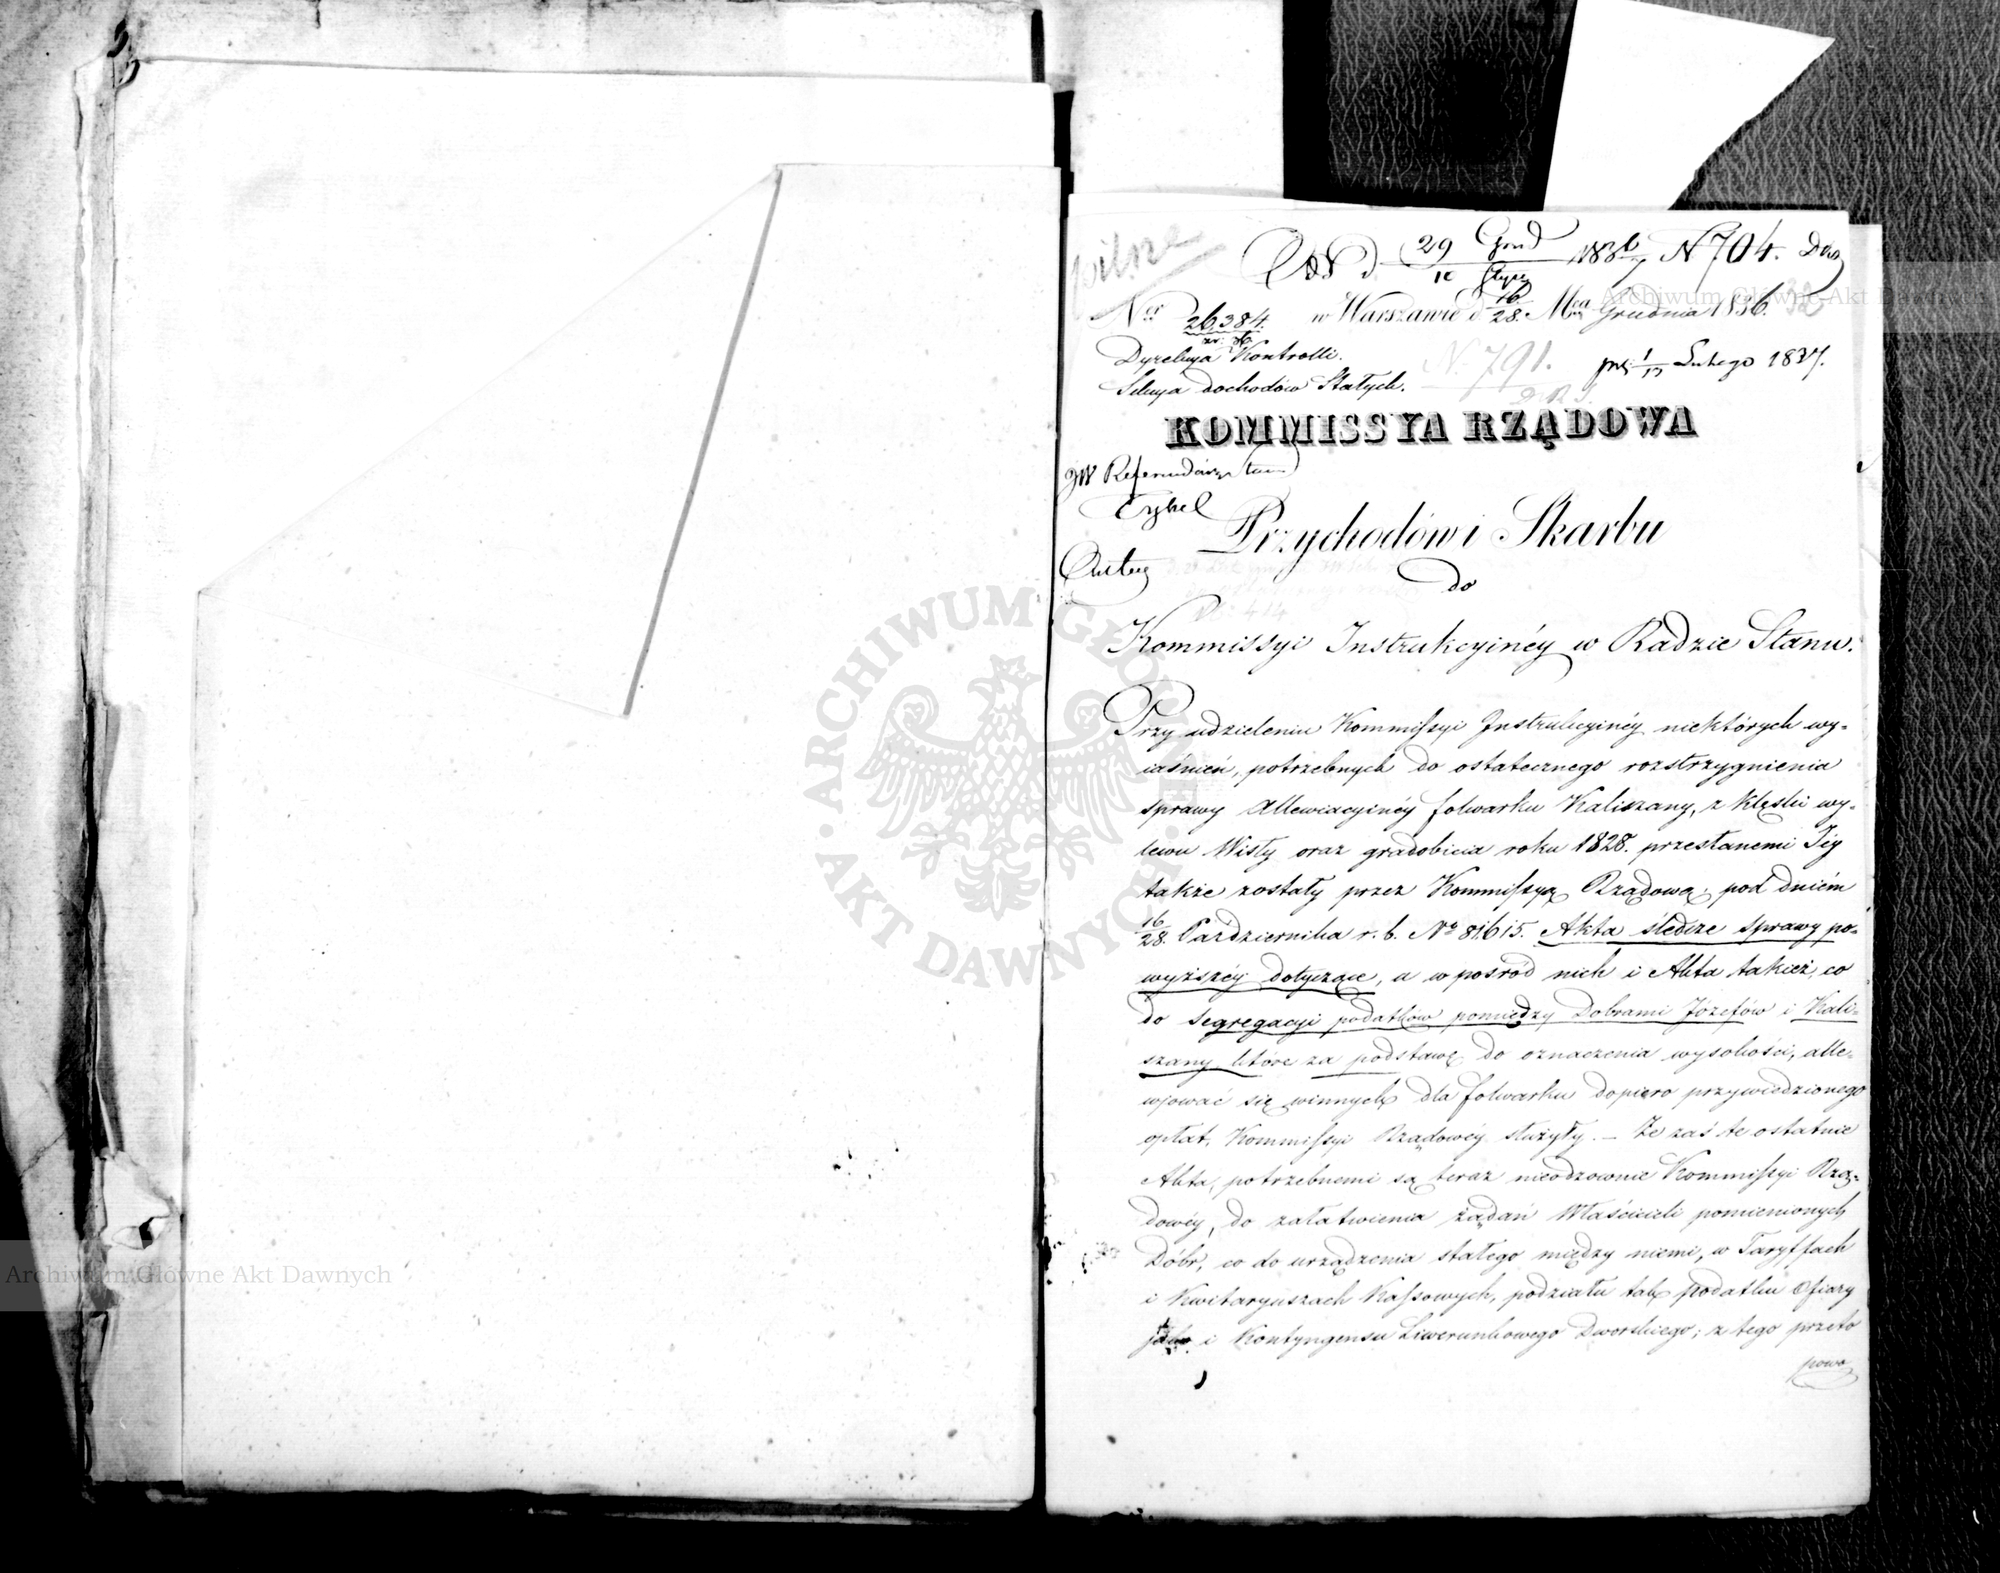 pilne
29 Grud 1836/7 N 704.
Nro 26,384. w Warszawie d 16/28. Mca Grudnia 1836.
Dyrekcya Kontrolli.
N. 791. 1/13 Lutego 1837.
Sekcya dochodów Stałych.
KOMMISSYA RZĄDOWA
JW Referendarz Stanu
Przychodów i Skarbu
do
Kommissyi Instrukcyinéy w Radzie Stanu.
Przy udzieleniu Kommissyi Instrukcyinéy niektórych wy-
iaśnień, potrzebnych do ostatecznego rozstrzygnienia
sprawy Allewiacyinéy folwarku Kaliszany, z klęski wy-
lewu Wisły oraz gradobicia roku 1828. przesłanemi Jéy
także zostały przez Kommissyą Rządową, pod dniém
16/28. Października r. b. Nro 81615. Akta śledcze sprawy po-
wyższéy dotyczące, a w pośród nich i Akta takież, co
do segregacyi podatków pomiędzy Dobrami Józefów i Kali-
szany które za podstawę do oznaczenia wysokości, alle-
wjować się winnych dla folwarku dopiero przywiedzionego
opłat, Kommissyi Rządowéy służyły. – Że zaś te ostatnie
Akta, potrzebnemi są teraz nieodzownie Kommissyi Rzą-
dowéy, do załatwienia żądań Właścicieli pomienionych
Dóbr, co do urządzenia stałego między niemi, w Taryffach
i Kwitaryuszach Kassowych, podziału tak podatku Ofiary
jako i Kontyngensu Liwerunkowego Dworskiego; z tego przeto
powo
Archiwum Główne Akt Dawnych
Archiwum Główne Akt Dawnych
ARCHIWUM GŁÓWNE · AKT DAWNYCH ·